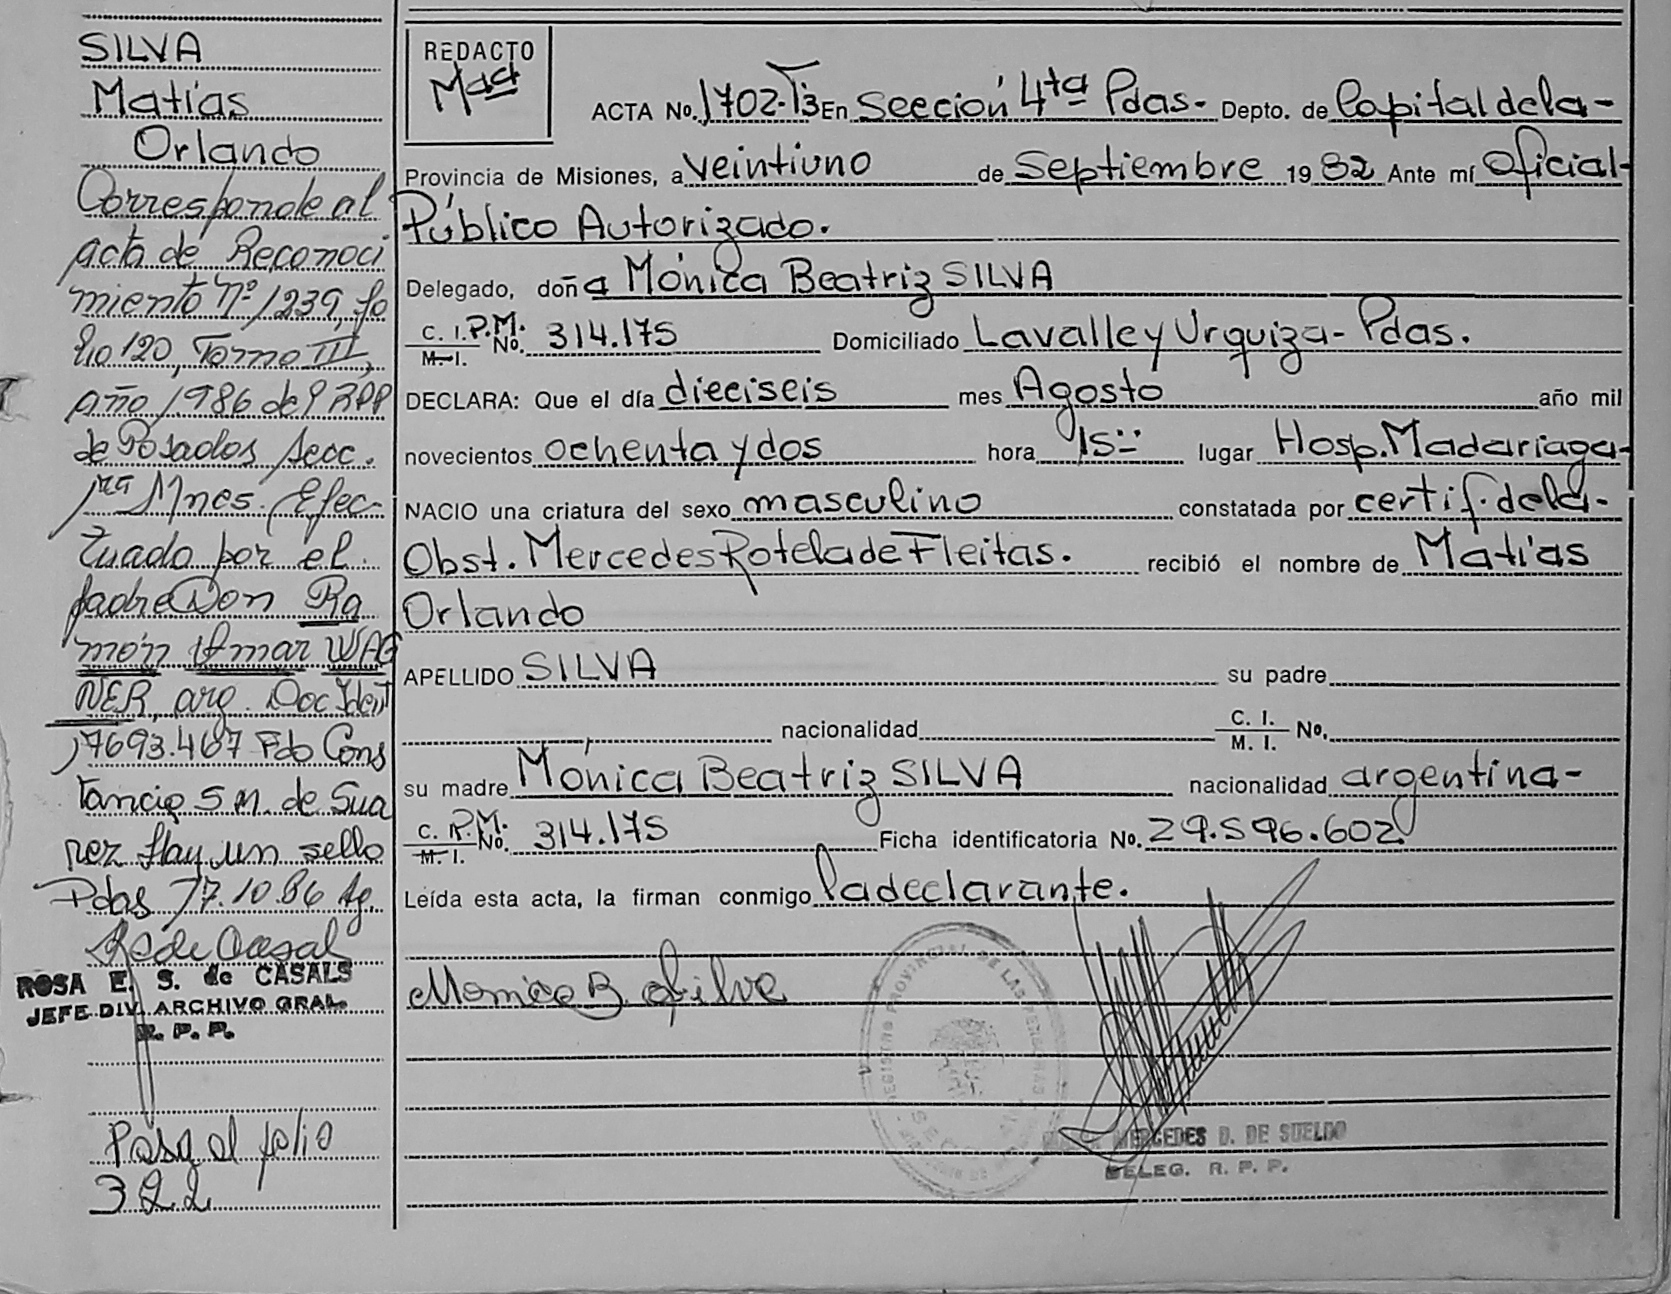 SILVA
Matías
Orlando
Corresponde al
acta de Reconoci
miento Nº 1239, fo
lio 120, Tomo III,
año 1986 del RPP
de Posadas Secc.
1ra Mnes. Efec-
tuado por el
padre Don Ra
món Omar WAG
NER, arg. Doc Ident
17693.467 Fdo Cons
tancia S M. de Sua
rez Hay un sello
Pdas 17.10.86 Ag.
R S de Casal
ROSA E. S. de CASALS
JEFE DIV. ARCHIVO GRAL.
R. P. P.
Pasa al folio
322
REDACTO
ACTA No. 1702-T3 En Sección 4ta Pdas- Depto. de Capital de la-
Provincia de Misiones, a veintiuno de Septiembre 19 82 Ante mí Oficial-
Público Autorizado.
Delegado, doña Mónica Beatriz SILVA
C. I. P.M. M. I. No. 314.175 Domiciliado Lavalle y Urquiza- Pdas.
DECLARA: Que el día dieciseis mes Agosto año mil
novecientos ochenta y dos hora 15 lugar Hosp. Madariaga-
NACIO una criatura del sexo masculino constatada por certif. de la-
Obst. Mercedes Rotela de Fleitas. recibió el nombre de Matías
Orlando
APELLIDO SILVA su padre
nacionalidad C. I. M. I. No.
su madre Mónica Beatriz SILVA nacionalidad argentina-
C. P.M. M. I. No. 314.175 Ficha identificatoria No. 29.596.602
Leída esta acta, la firman conmigo la declarante.
Monica B. Silva
REGISTRO PROVINCIAL DE LAS PERSONAS
MERCEDES D. DE SUELDO
DELEG. R. P. P.